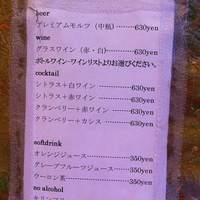 beer
プレミアムモルツ（中瓶）………630yen
wine
グラスワイン（赤・白）………630yen
ボトルワイン・ワインリストよりお選びください。
cocktail
シトラス＋白ワイン………630yen
シトラス＋赤ワイン………630yen
クランベリー＋赤ワイン……630yen
クランベリー＋カシス………630yen
softdrink
オレンジジュース…………350yen
グレープフルーツジュース……350yen
ウーロン茶…………350yen
no alcohol